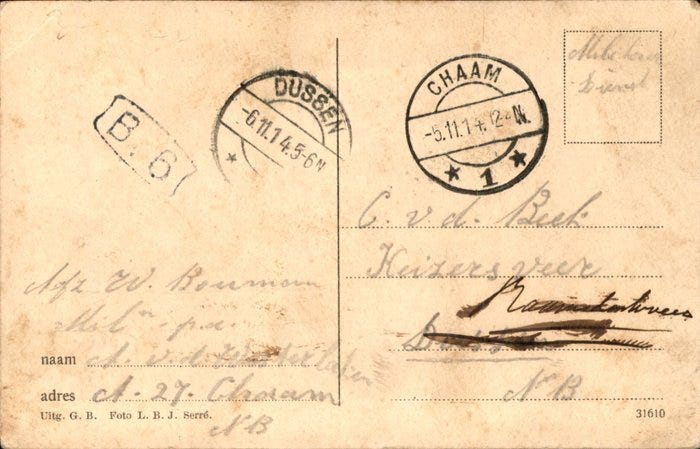 DUSSEN
-6.11.14.5-6N
CHAAM
-5.11.14.12-4N.
1
B. 6
Dienst
C. v. d. Beek
Keizersveer
Raamsdonksveer
N B
Afz W. Bouman
Mil
naam A. v. d.
adres A. 27. Chaam
N B
Uitg. G. B. Foto L. B. J. Serré.
31610